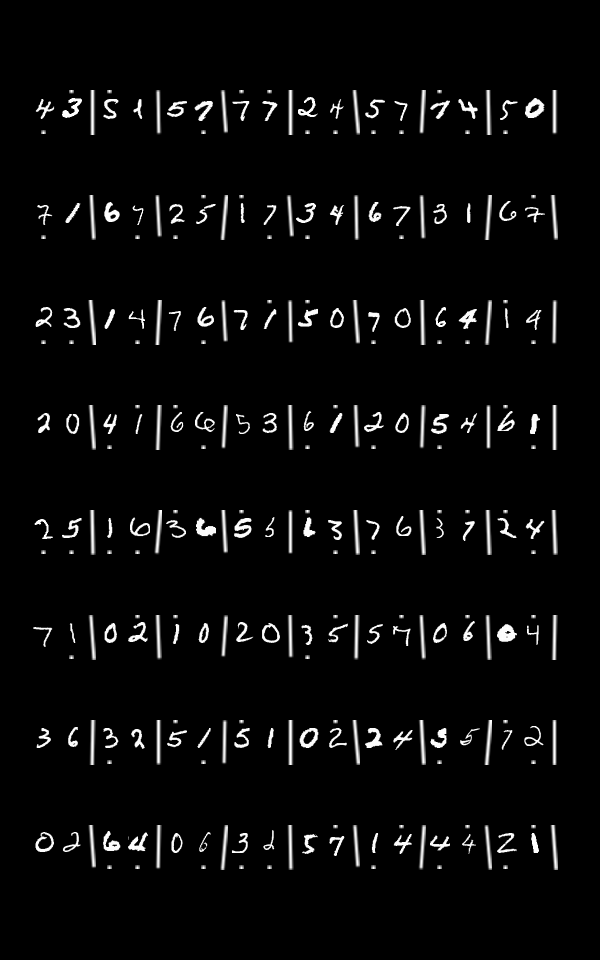 4 3 | 5 1 | 5 7 | 7 7 | 2 4 | 5 7 | 7 4 | 5 0 |
7 1 | 6 7 | 2 5 | 1 7 | 3 4 | 6 7 | 3 1 | 6 7 |
2 3 | 1 4 | 7 6 | 7 1 | 5 0 | 7 0 | 6 4 | 1 4 |
2 0 | 4 1 | 6 6 | 5 3 | 6 1 | 2 0 | 5 4 | 6 1 |
2 5 | 1 6 | 3 6 | 5 5 | 1 3 | 7 6 | 3 7 | 2 4 |
7 1 | 0 2 | 1 0 | 2 0 | 3 5 | 5 7 | 0 6 | 0 4 |
3 6 | 3 2 | 5 1 | 5 1 | 0 2 | 2 4 | 3 5 | 7 2 |
0 2 | 6 4 | 0 6 | 3 2 | 5 7 | 1 4 | 4 4 | 2 1 |